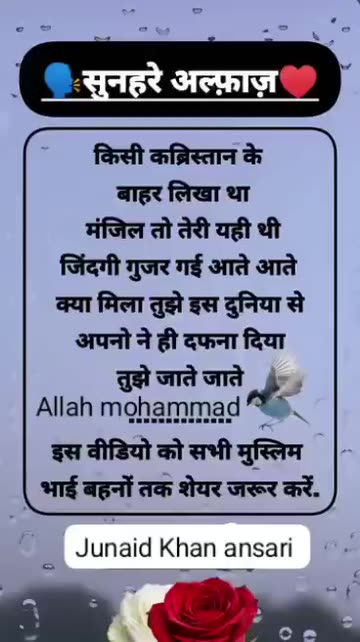 🗣️सुनहरे अल्फ़ाज़♥️
किसी कब्रिस्तान के
बाहर लिखा था
मंजिल तो तेरी यही थी
जिंदगी गुजर गई आते आते
क्या मिला तुझे इस दुनिया से
अपनो ने ही दफना दिया
तुझे जाते जाते
Allah mohammad
इस वीडियो को सभी मुस्लिम
भाई बहनों तक शेयर जरूर करें.
Junaid Khan ansari